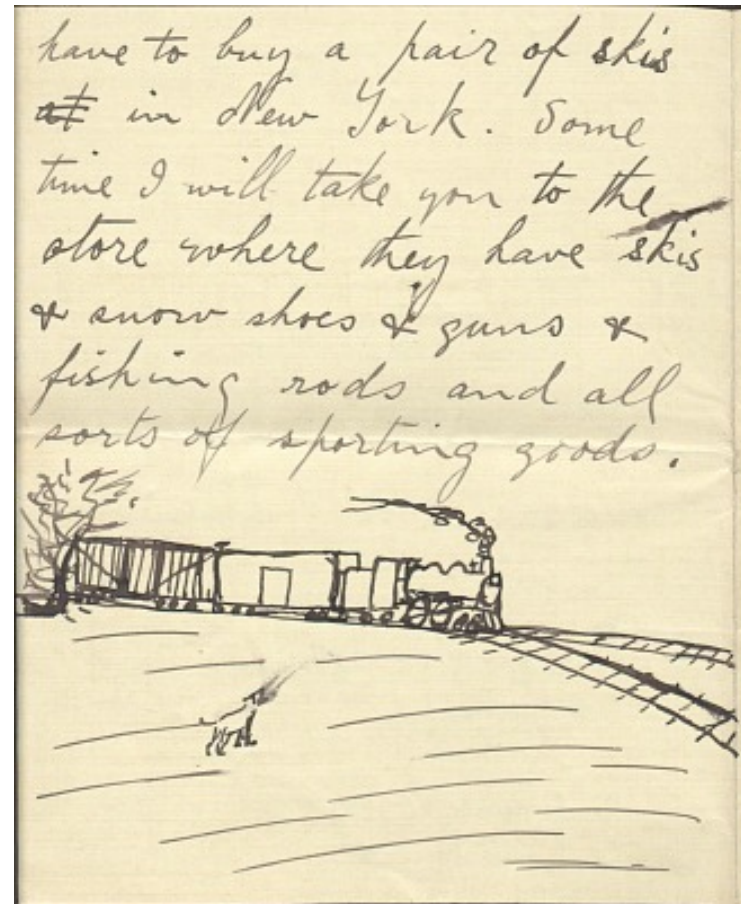 have to buy a pair of skis
at in New York. Some
time I will take you to the
store where they have skis
& snow shoes & guns &
fishing rods and all
sorts of sporting goods.